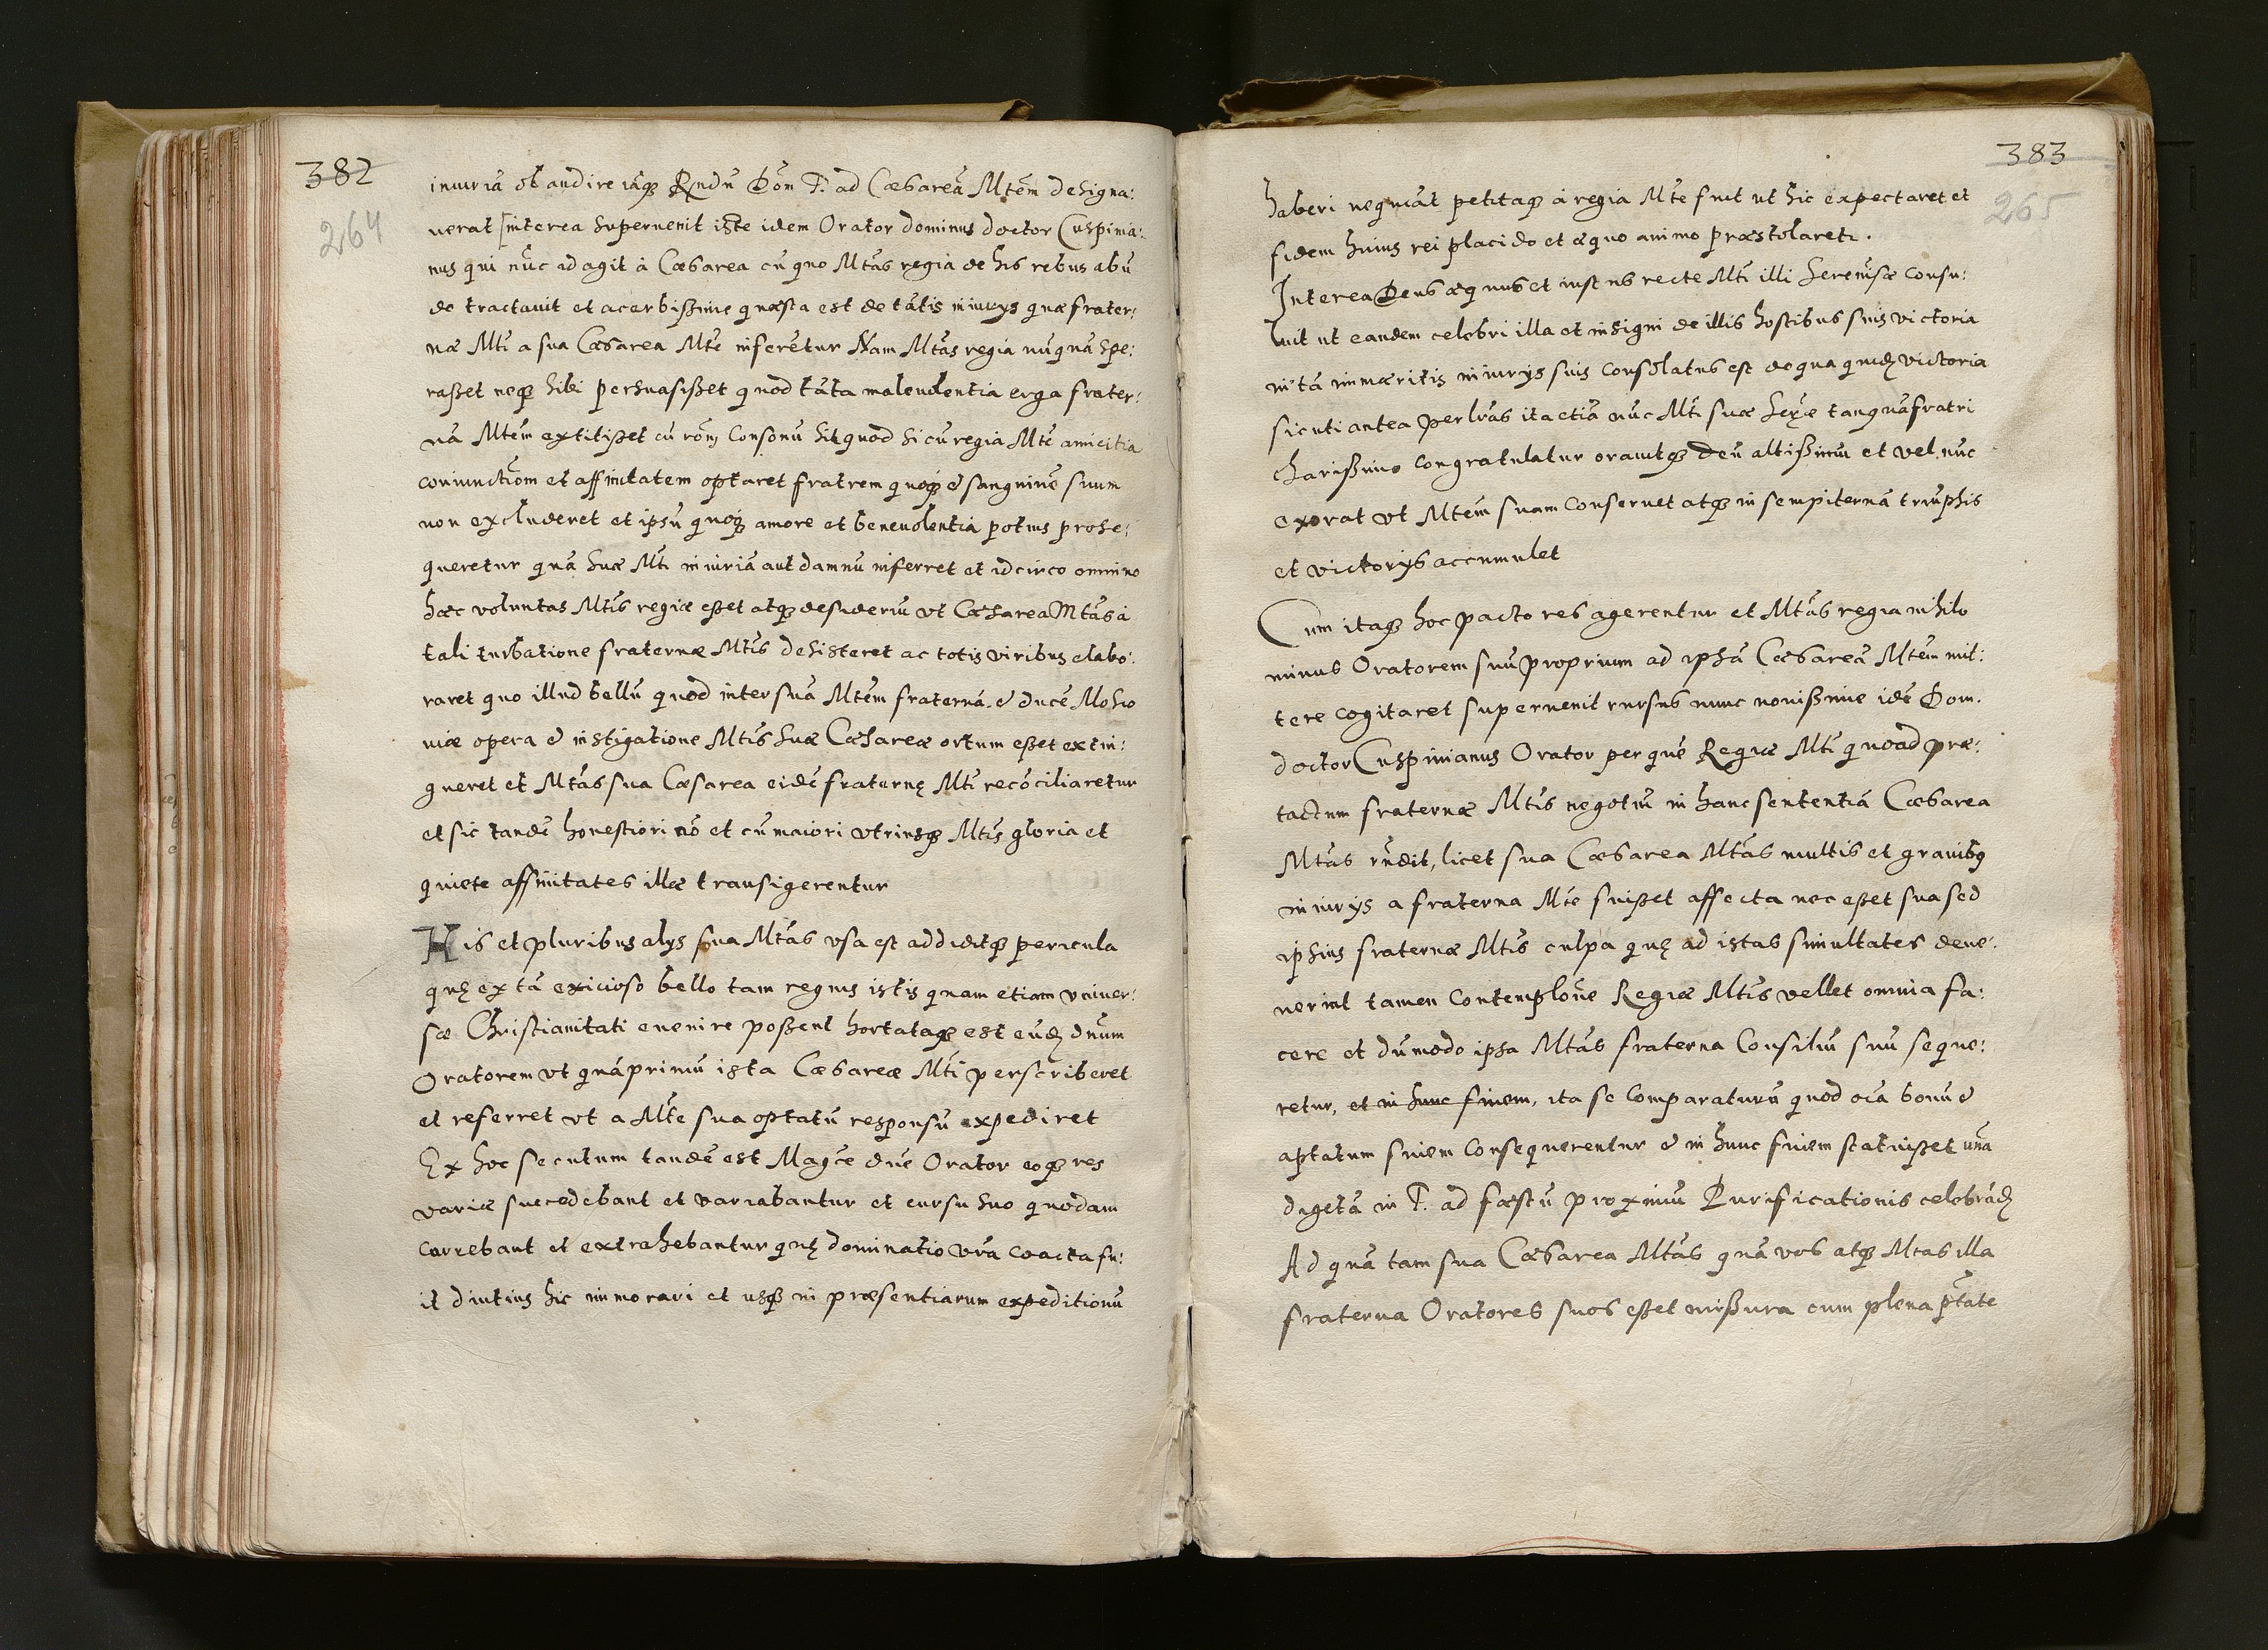 382
264
iniuriã obaudire iãq; Rndũ Dõm T. ad Caesareã Mtẽm designa:
uerat [interea superuenit iste idem Orator dominus doctor Cuspinia:
nus qui nũc id agit à Caesarea cũ quo Mtãs regia de his rebus abũ
de tractauit et acerbißime quaesta est de tãtis iniurys quae frater:
nae Mti a sua Caesarea Mte inferẽtur Nam Mtãs regia nũquã spe:
raßet neq; sibi persuasißet quod tãta maleuolentia erga frater:
nã Mtẽm extitißet cũ rõnj consonũ sit quod si cũ regia Mte amicitia
coniunctiõm et affinitatem optaret fratrem quoq; & sanguinẽ suum
non excluderet et ipsũ quoq; amore et beneuolentia potius prose:
queretur quã suae Mti iniuriã aut damnũ inferret et idcirco omnino
haec voluntas Mtis regiae eßet atq; desideriũ vt Caesarea Mtãs à
tali turbatione fraternae Mtis desisteret ac totis viribus elabo:
raret quo illud bellũ quod inter suã Mtẽm fraternã & ducẽ Mosco
uiae opera & instigatione Mtis suae Caesareae ortum eßet extin:
gueret et Mtãs sua Caesarea eidẽ fraternę Mti recõciliaretur
et sic tandẽ honestiori nõ et cũ maiori vtriusq; Mtis gloria et
quiete affinitates illae transigerentur
His et pluribus alys sua Mtãs vsa est addiditq; pericula
quę ex tã exicioso bello tam regnis istis quam etiam vniuer:
sae Christianitati euenire poßent hortataq; est eũd dnum
Oratorem vt quãprimũ ista Caesareae Mti perscriberet
et referret vt a Mte sua optatũ responsũ expediret
Ex hoc secutum tandẽ est Magce dne Orator eoq; res
variae succedebant et variabantur et cursu suo quodam
currebant et extrahebantur quę dominatio vra coacta fu:
it diutius hic immorari et usq; in praesentiarum expeditionũ
383
265
haberi nequiãt petitaq; à regia Mte fuit ut hic expectaret et
fidem huius rei placido et aequo animo praestolareti.
Interea Deus aequus et iustus recte Mti illi Serenisae consu:
luit ut eandem celebri illa et insigni de illis hostibus suis victoria
in tã immaeritis iniurys suis consolatus est de qua quid victoria
sicuti antea per lrãs ita etiã nũc Mti suae Serae tanquã fratri
charißimo congratulatur orauitq; deũ altißimũ et vel nũc
exorat vt Mtẽm suam conseruet atq; in sempiternã triũphis
et victorys accumulet
Cum itaq; hoc pacto res agerentur et Mtãs regia nihilo
minus Oratorem suũ proprium ad ipsã Caesareã Mtẽm mit:
tere cogitaret superuenit rursus nunc nouißime idẽ Dom.
doctor Cuspinianus Orator per quẽ Regiae Mti quoad prae:
tactum fraternae Mtis negotiũ in hanc sententiã Caesarea
Mtãs rñdit, licet sua Caesarea Mtãs multis et grauibq
iniurys a fraterna Mte fuißet affecta nec eßet sua sed
ipsius fraternae Mtis culpa quę ad istas simultates deue:
nerint tamen contemplõne Regiae Mtis vellet omnia fa:
cere et dũmodo ipsa Mtãs fraterna Consiliũ suũ seque:
retur, et in hunc finem, ita se comparaturũ quod oĩa bonũ &
aptatum finem consequerentur & in hunc finem statuißet unã
dyetã in T. ad faestũ proximũ Purificationis celebrãd
Ad quã tam sua Caesarea Mtãs quã vos atq; Mtas illa
fraterna Oratores suos eßet mißura cum plena ptãte